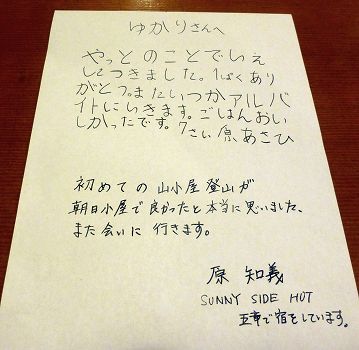 ゆかりさんへ
やっとのことでいえ
につきました。1ぱくあり
がとう。またいつかアルバ
イトにいきます。ごはんおい
しかったです。7さい 原あさひ
初めての山小屋登山が
朝日小屋で良かったと本当に思いました、
また会いに行きます。
原 知義
SUNNY SIDE HUT
五竜で宿をしています。